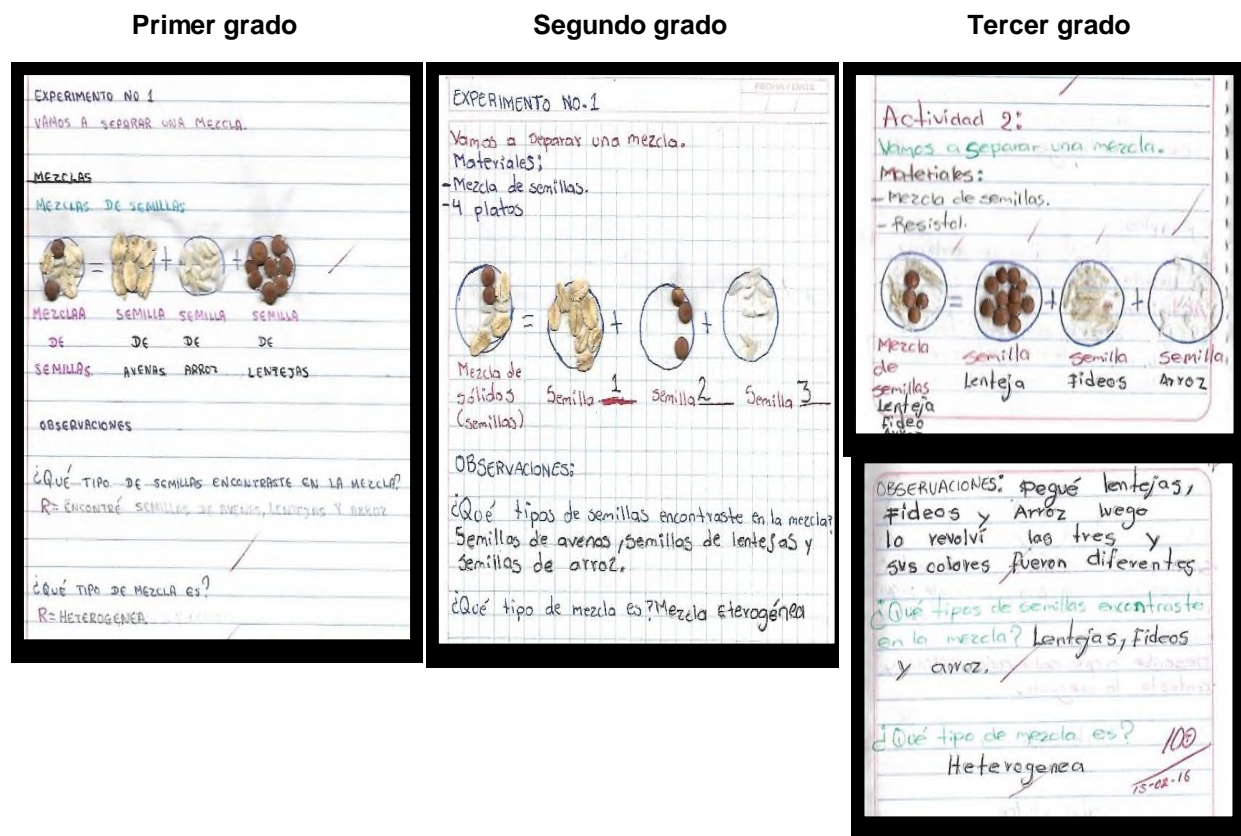 Primer grado
EXPERIMENTO NO 1
VAMOS A SEPARAR UNA MEZCLA.
MEZCLAS
MEZCLAS DE SEMILLAS
= + +
MEZCLAA SEMILLA SEMILLA SEMILLA
DE DE DE DE
SEMILLAS AVENAS ARROZ LENTEJAS
OBSERVACIONES
¿QUÉ TIPO DE SEMILLAS ENCONTRASTE EN LA MEZCLA?
R= ENCONTRÉ SEMILLAS DE AVENAS, LENTEJAS Y ARROZ
¿QUÉ TIPO DE MEZCLA ES?
R= HETEROGENEA
Segundo grado
FECHA/DATE
EXPERIMENTO NO.1
Vamos a separar una mezcla.
Materiales:
-Mezcla de semillas.
-4 platos
= + +
Mezcla de
sólidos Semilla 1 Semilla 2 Semilla 3
(semillas)
OBSERVACIONES:
¿Qué tipos de semillas encontraste en la mezcla?
Semillas de avenas, semillas de lentejas y
semillas de arroz.
¿Qué tipo de mezcla es? Mezcla Eterogénea
Tercer grado
Actividad 2:
Vamos a separar una mezcla.
Materiales:
- Mezcla de semillas.
- Resistol.
= + +
Mezcla semilla semilla semilla
de Lenteja Fideos Arroz
semillas
Lenteja
Fideo
Arroz
OBSERVACIONES: Pegué lentejas,
Fideos y Arroz luego
lo revolví las tres y
sus colores fueron diferentes
¿Qué tipos de semillas encontraste
en la mezcla? Lentejas, Fideos
y arroz.
¿Qué tipo de mezcla es? 100
Heterogenea 15-02-16